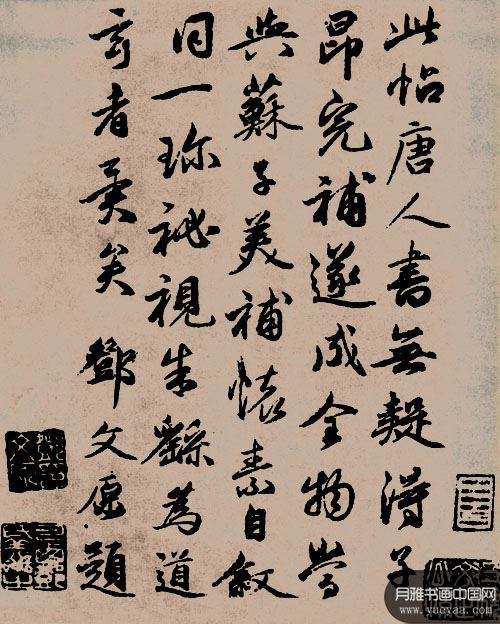 此帖唐人書無疑得子
昂完補遂成全物當
與蘇子美補懷素自敘
同一珍祕視朱繇為道
玄者異矣 鄧文原題
月雅书画中国网
www.yueyaa.com